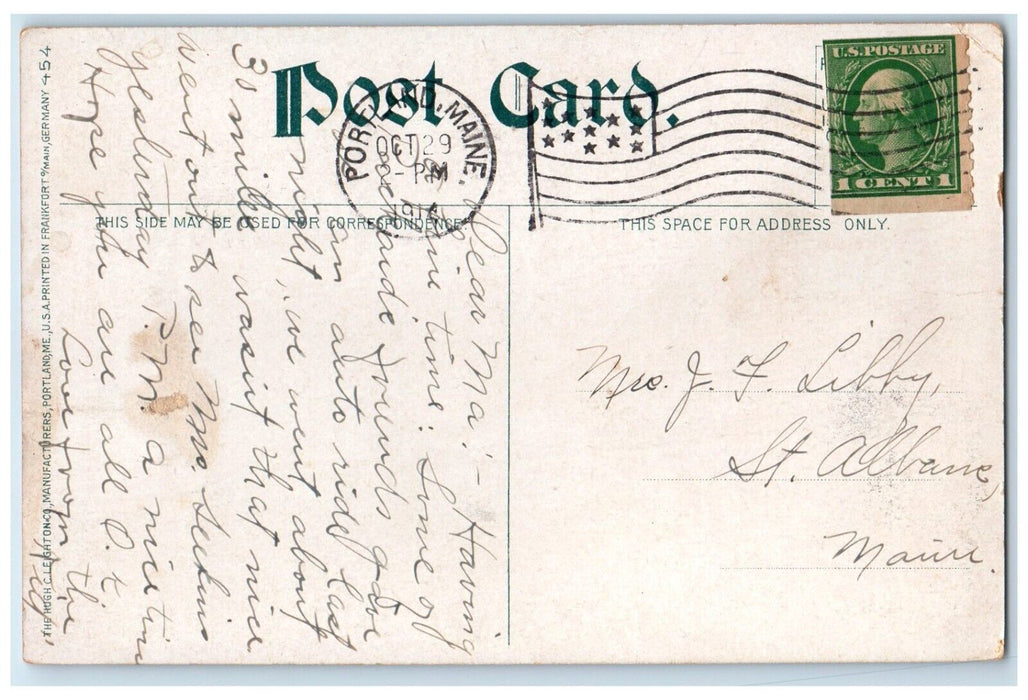 Post Card.
PORTLAND, MAINE.
OCT 29
2-PM
191
U.S. POSTAGE
1 CENT 1
THIS SIDE MAY BE USED FOR CORRESPONDENCE.
THIS SPACE FOR ADDRESS ONLY.
THE HUGH C. LEIGHTON CO., MANUFACTURERS, PORTLAND, ME., U.S.A. PRINTED IN FRANKFORT o/MAIN, GERMANY 454
Dear Ma:- Having
fine time. Some of
friends gave
us an auto ride last
night, we went about
30 miles wasn't that nice
went out to see Mrs.
yesterday P.M. a
Hope you are all O.K.
Love from
Mrs. J. F. Libby,
St. Albans,
Maine.